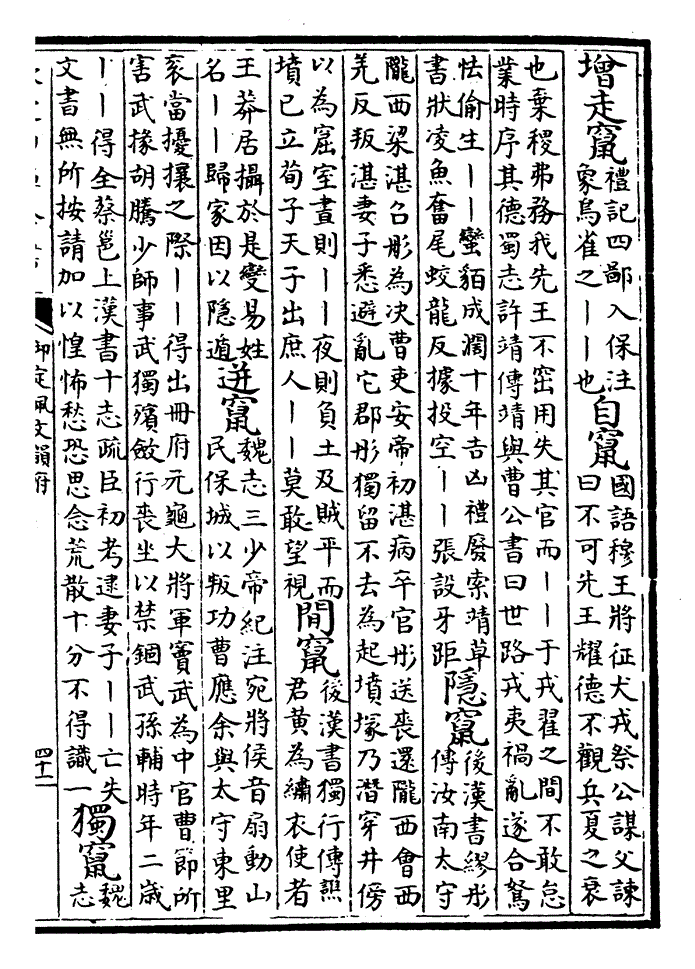 增走竄
禮記四鄙入保注
象鳥雀之丨丨也
自竄
國語穆王將征犬戎祭公謀父諫
曰不可先王耀德不觀兵夏之衰
也棄稷弗務我先王不窋用失其官而丨丨于戎翟之間不敢怠
業時序其德蜀志許靖傳靖與曹公書曰世路戎夷禍亂遂合駑
怯偷生丨丨蠻貊成濶十年吉凶禮廢索靖草
書狀凌魚奮尾蛟龍反據投空丨丨張設牙距
隱竄
後漢書繆肜
傳汝南太守
隴西梁湛召肜為决曹吏安帝初湛病卒官肜送喪還隴西會西
羌反叛湛妻子悉避亂它郡肜獨留不去為起墳塚乃潛穿井傍
以為窟室晝則丨丨夜則負土及賊平而
墳已立荀子天子出庶人丨丨莫敢望視
間竄
後漢書獨行傳譙
君黃為繡衣使者
王莽居攝於是變易姓
名丨丨歸家因以隱遁
迸竄
魏志三少帝紀注宛將侯音扇動山
民保城以叛功曹應余與太守東里
衮當擾攘之際丨丨得出冊府元龜大將軍竇武為中官曹節所
害武掾胡騰少師事武獨殯斂行喪坐以禁錮武孫輔時年二歲
丨丨得全蔡邕上漢書十志疏臣初考逮妻子丨丨亡失
文書無所按請加以惶怖愁恐思念荒散十分不得識一
獨竄
魏
志
御定佩文韻府
四十一